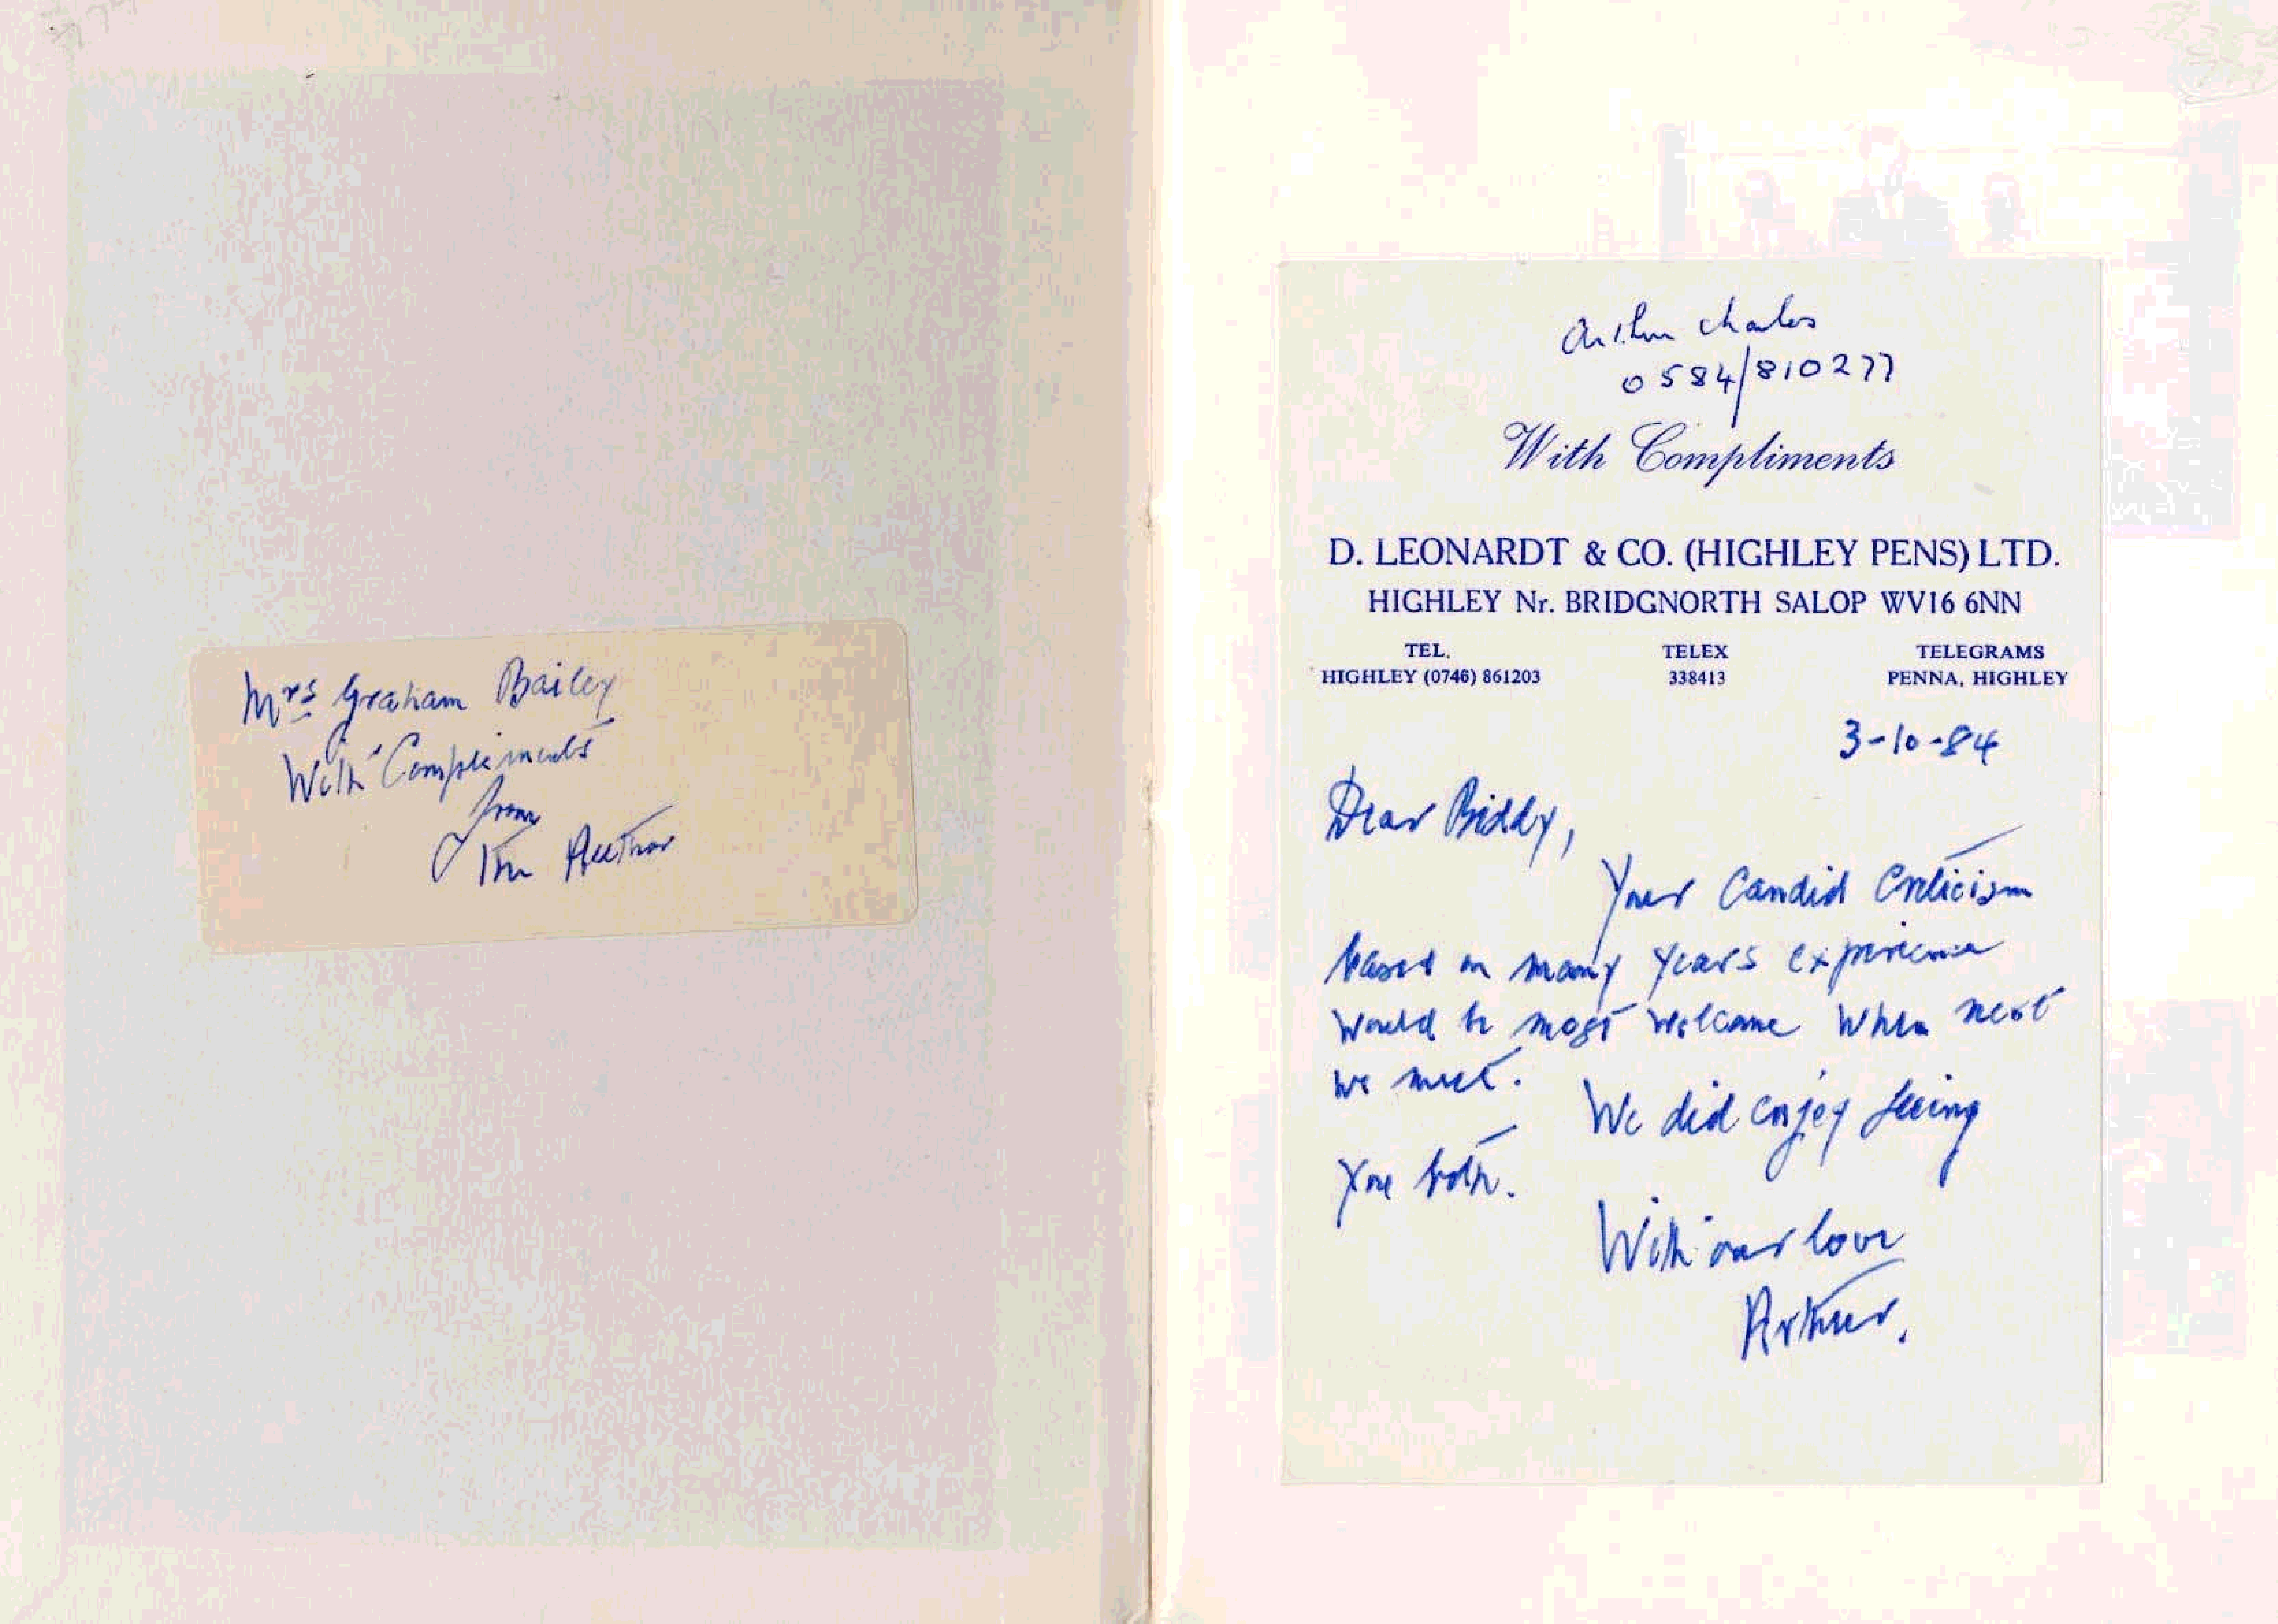 Mrs Graham Bailey
With Compliments
from
The Author
Arthur Charles
0584/810277
With Compliments
D. LEONARDT & CO. (HIGHLEY PENS) LTD.
HIGHLEY Nr. BRIDGNORTH SALOP WV16 6NN
TEL. TELEX TELEGRAMS
HIGHLEY (0746) 861203 338413 PENNA, HIGHLEY
3-10-84
Dear Biddy,
Your Candid Criticism
based on many years experience
would be most welcome when next
we meet.
We did enjoy seeing
you both.
With our love
Arthur.